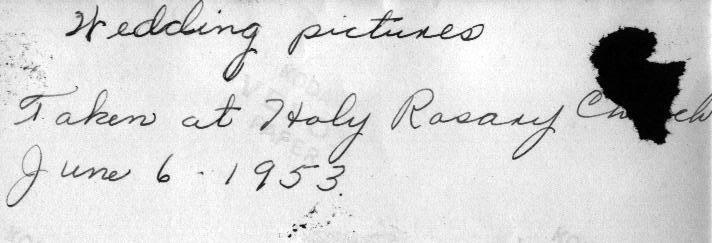 Wedding pictures
Taken at Holy Rosary Church
June 6 - 1953
PAPER